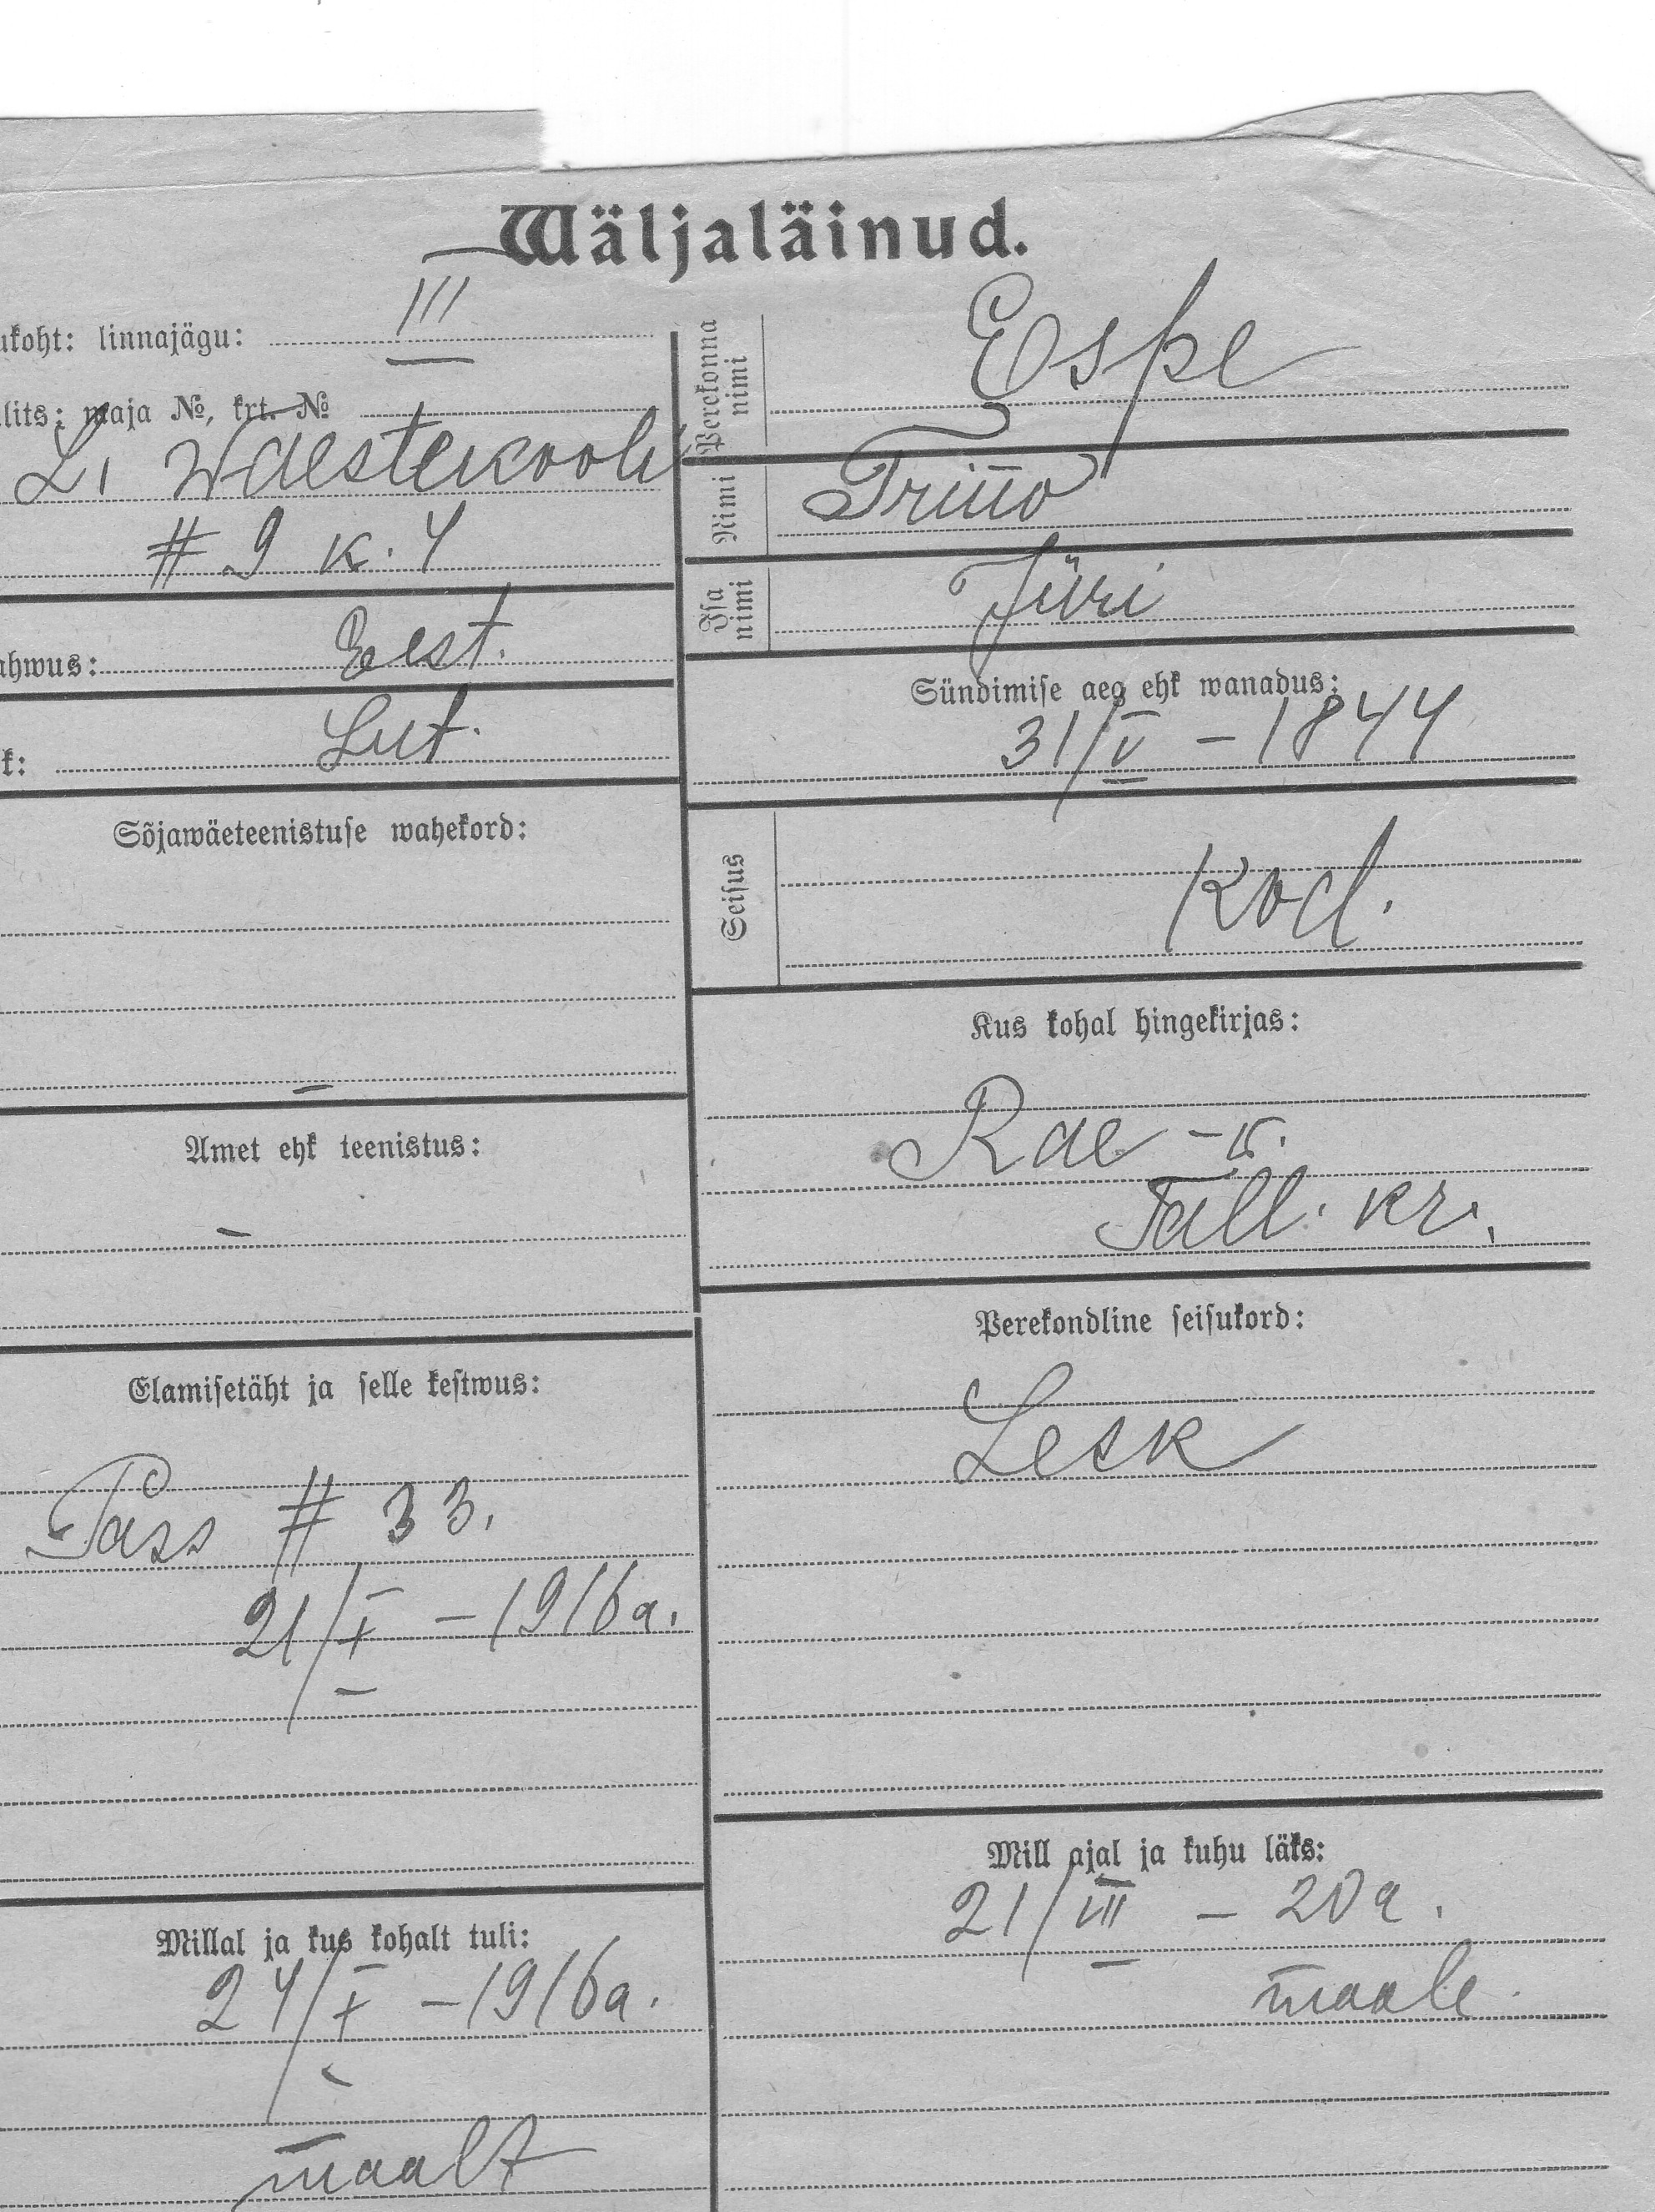 Wäljaläinud.
ukoht: linnajägu: III
lits: maja №, krt. №
L. Waestekooli
# 9 k. 4
ahwus: Eest.
k: Lut.
Sõjawäeteenistuse wahekord:
–
Amet ehk teenistus:
–
Elamisetäht ja selle kestwus:
Pass # 33.
21/X – 1916a.
Millal ja kus kohalt tuli:
24/X – 1916a.
maalt
Perekonna nimi Espe
Nimi Triino
Isa nimi Jüri
Sündimise aeg ehk wanadus:
31/V – 1844
Seisus Kod.
Kus kohal hingekirjas:
Rae – k.
Tall. kr.
Perekondline seisukord:
Lesk
Mill ajal ja kuhu läks:
21/VII – 20a.
maale.